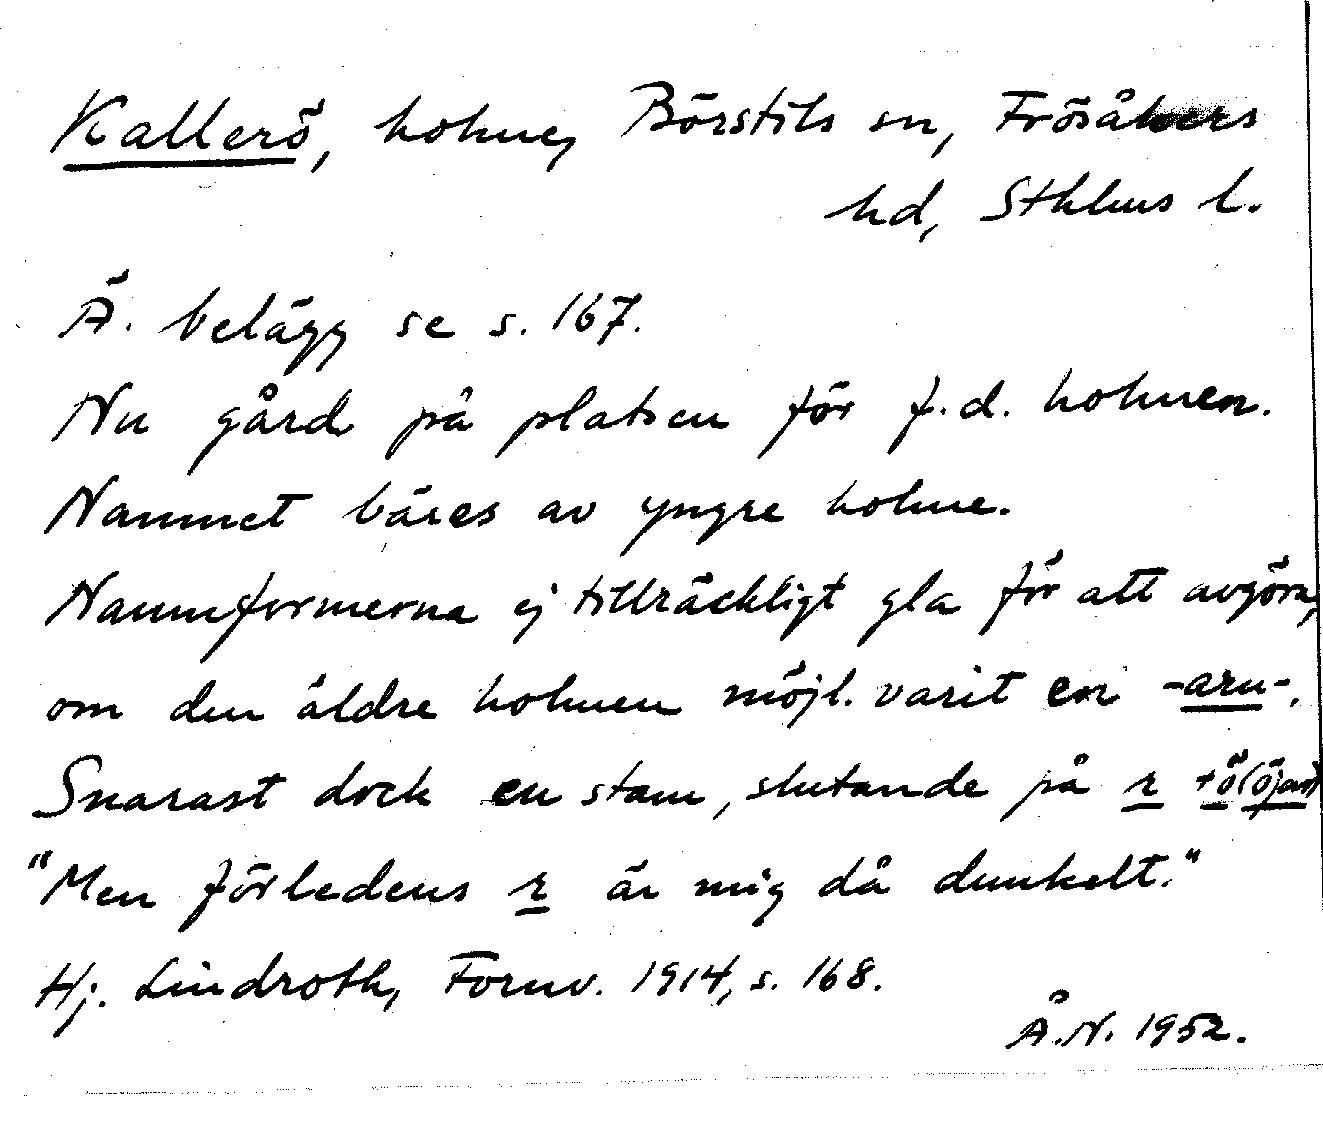 Kallerö, holme, Börstils sn, Frösåkers
hd, Sthlms l.
Ä. belägg se s. 167.
Nu gård på platsen för f.d. holmen.
Namnet bäres av yngre holme.
Namnformerna ej tillräckligt gla för att avgöra,
om den äldre holmen möjl. varit en -aru-.
Snarast dock en stam, slutande på r + ö (öjar)
"Men förledens r är mig då dunkelt."
Hj. Lindroth, Fornv. 1914, s. 168.
Å.N. 1952.